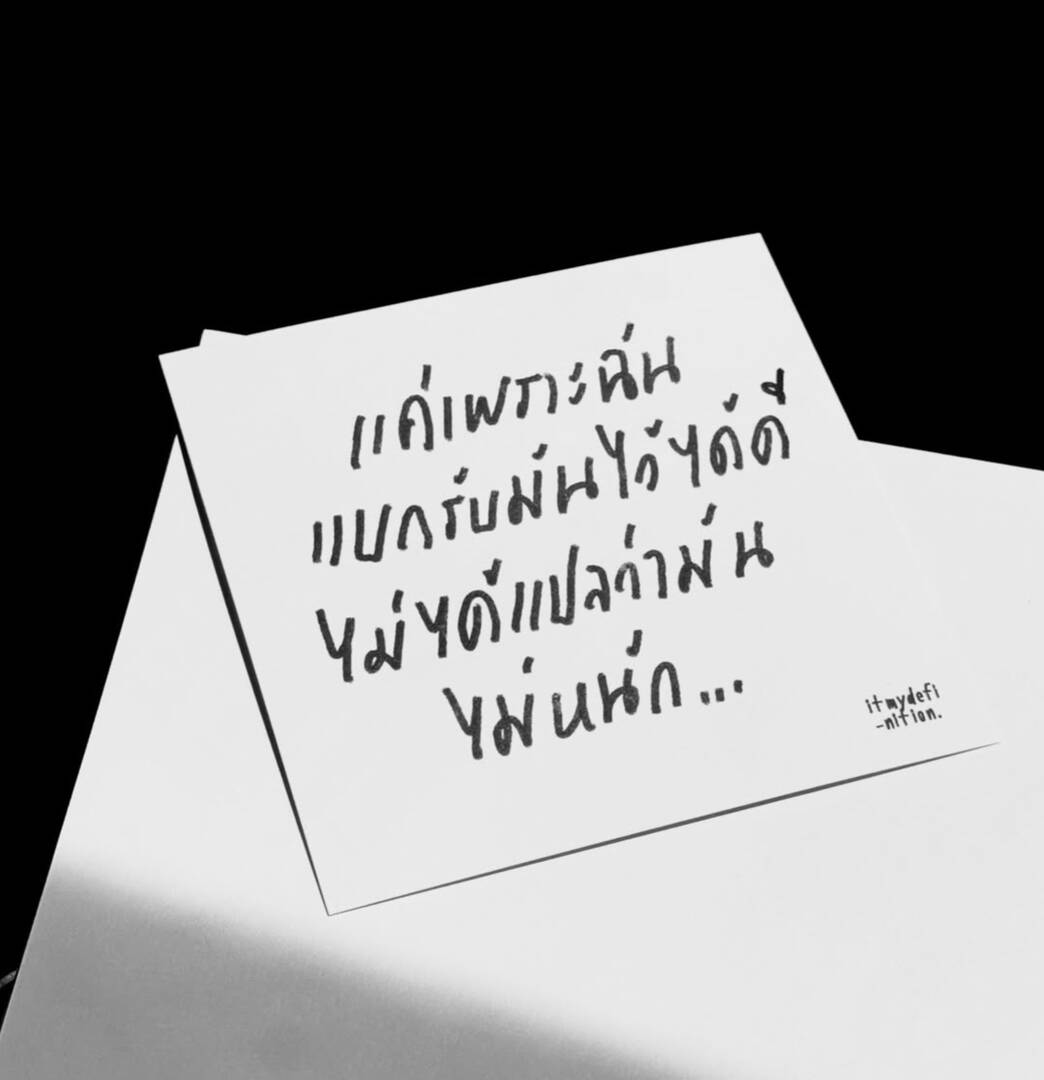 แค่เพราะฉัน
แบกรับมันไว้ได้ดี
ไม่ได้แปลว่ามัน
ไม่หนัก...
itmydefi
-nition.